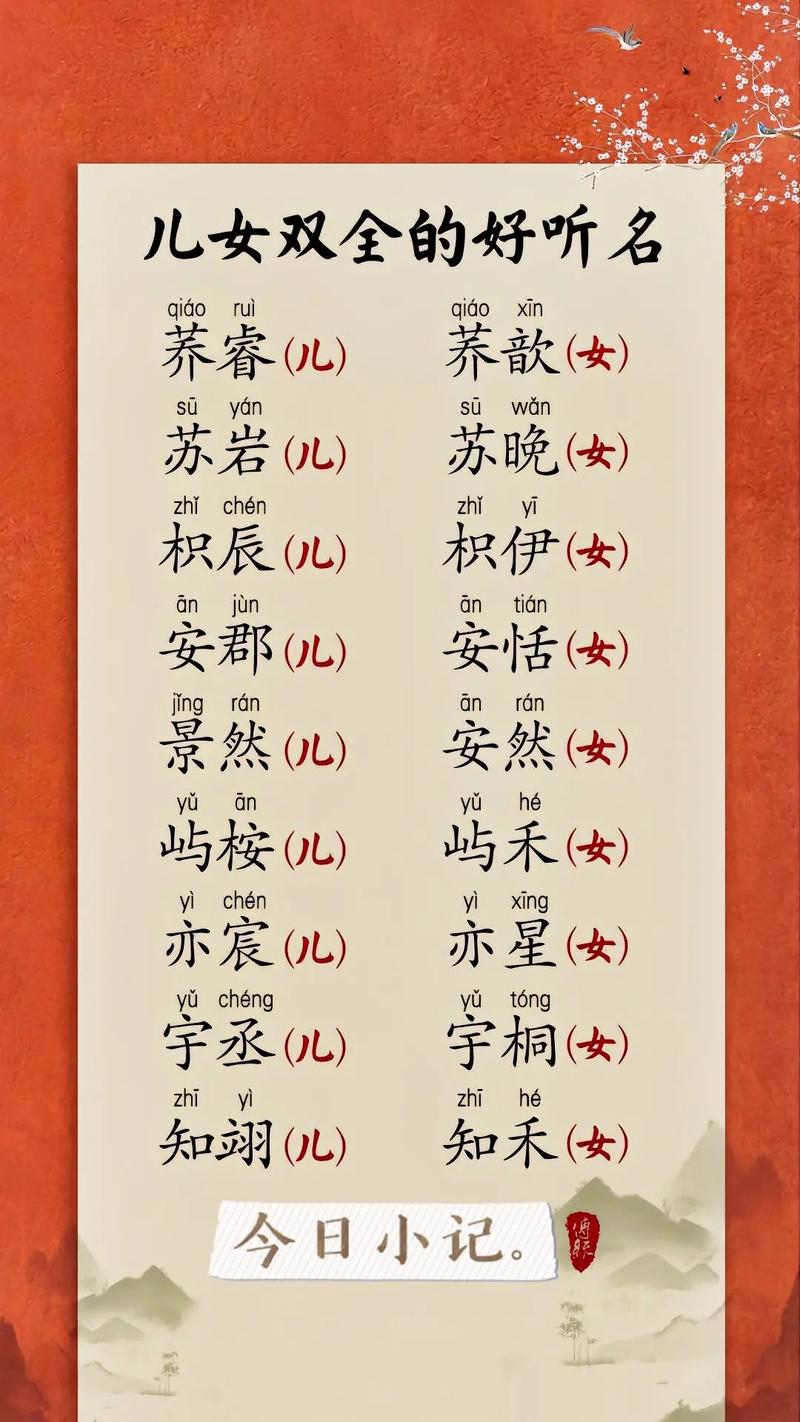 儿女双全的好听名
qiáo ruì qiáo xīn
荞睿(儿) 荞歆(女)
sū yán sū wǎn
苏岩(儿) 苏晚(女)
zhǐ chén zhǐ yī
枳辰(儿) 枳伊(女)
ān jùn ān tián
安郡(儿) 安恬(女)
jǐng rán ān rán
景然(儿) 安然(女)
yǔ ān yǔ hé
屿桉(儿) 屿禾(女)
yì chén yì xīng
亦宸(儿) 亦星(女)
yǔ chéng yǔ tóng
宇丞(儿) 宇桐(女)
zhī yì zhī hé
知翊(儿) 知禾(女)
今日小记。